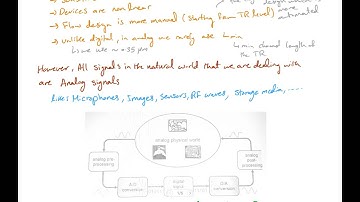 → Devices are nonlinear
→ Flow design is more manual (starting from TR level)
automated
→ unlike digital, in analog we rarely use Lmin
Lmin channel length of
the TR
However, All signals in the natural world that we are dealing with
are Analog signals
Likes Microphones, Images, Sensors, RF waves, Storage media, ....
analog physical world
analog pre-
processing
analog
post-
processing
A/D
conversion
D/A
conversion